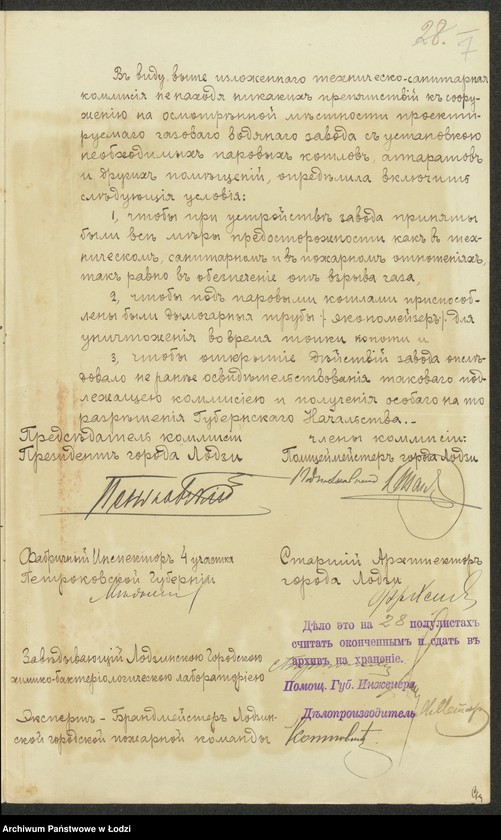 28.
7
Въ виду выше изложеннаго техническо-санитарная
коммисія не находя никакихъ препятствій къ соору-
женію на осмотрѣнной мѣстности проекти-
руемаго газоваго водянаго завода съ установкою
необходимыхъ паровыхъ котловъ, аппаратовъ
и другихъ помѣщеній, опредѣлила включить
слѣдующія условія:
1, чтобы при устройствѣ завода приняты
были всѣ мѣры предосторожности какъ въ тех-
ническомъ, санитарномъ и въ пожарномъ отношеніяхъ,
такъ равно въ обезпеченіе отъ взрыва газа,
2, чтобы подъ паровыми котлами приспособ-
лены были дымогарныя трубы /экономейзеръ/ для
уничтоженія во время топки копоти и
3, чтобы открытіе дѣйствій завода послѣ-
довало не ранѣе освидѣтельствованія таковаго под-
лежащею коммисіею и полученія особаго на то
разрѣшенія Губернскаго Начальства.-
Предсѣдатель коммисіи
Президентъ города Лодзи
члены коммисіи:
Полицiймейстеръ города Лодзи
Фабричный Инспекторъ 4 участка
Петроковской Губерніи
Старшій Архитекторъ
города Лодзи
Дѣло это на 28 полулистахъ
считать оконченнымъ и сдать въ
архивъ на храненіе.
Помощ. Губ. Инженера
Дѣлопроизводитель
Завѣдывающій Лодзинскою Городскою
химико-бактеріологическою лабораторіею
Экспертъ - Брандмейстеръ Лодзин-
ской городской пожарной команды
Archiwum Państwowe w Łodzi